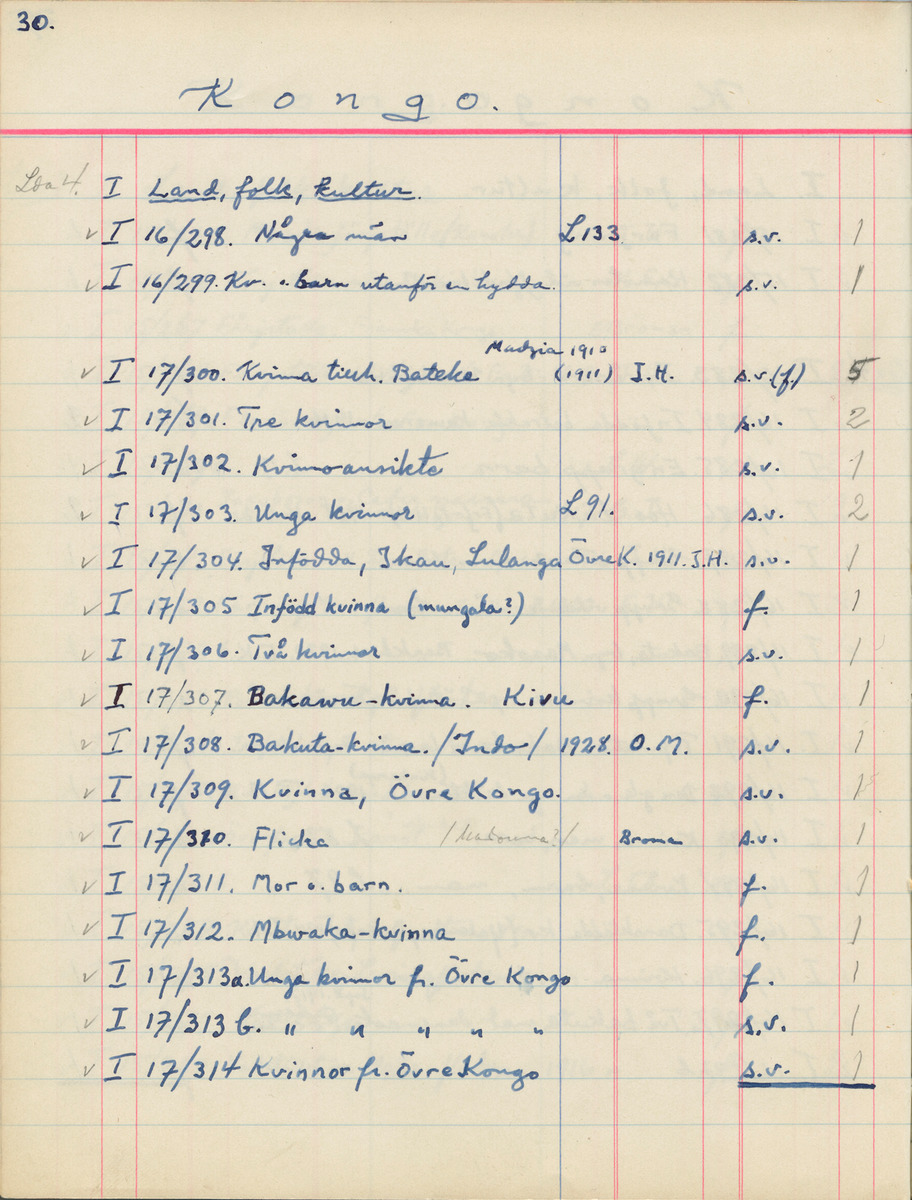 30.
Kongo.
Låda 4. I Land, folk, kultur.
✓ I 16/298. Några män L133 s.v. 1
✓ I 16/299. Kv. o. barn utanför en hydda. s.v. 1
Madzia 1910
✓ I 17/300. Kvinna tillh. Bateke (1911) J.H. s.v.(f.) 5
✓ I 17/301. Tre kvinnor s.v. 2
✓ I 17/302. Kvinnoansikte s.v. 1
✓ I 17/303. Unga kvinnor L91. s.v. 2
✓ I 17/304. Infödda, Ikau, Lulanga Övre K. 1911. J.H. s.v. 1
✓ I 17/305 Infödd kvinna (mungala?) f. 1
✓ I 17/306. Två kvinnor s.v. 1
✓ I 17/307. Bakawu-kvinna. Kivu f. 1
✓ I 17/308. Bakuta-kvinna. /Indo/ 1928. O.M. s.v. 1
✓ I 17/309. Kvinna, Övre Kongo. s.v. 1
✓ I 17/310. Flicka /Madonna?/ Broman s.v. 1
✓ I 17/311. Mor o. barn. f. 1
✓ I 17/312. Mbwaka-kvinna f. 1
✓ I 17/313a. Unga kvinnor fr. Övre Kongo f. 1
✓ I 17/313 b. " " " " " s.v. 1
✓ I 17/314 Kvinnor fr. Övre Kongo s.v. 1